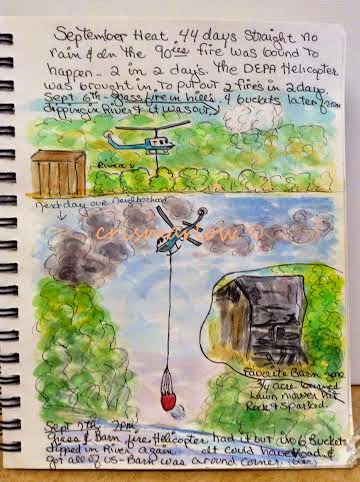 September Heat 44 days straight no
rain & in the 90ies fire was bound to
happen - 2 in 2 days. The DEPA Helicopter
was brought in to put out 2 fires in 2 days.
Sept 6th - Grass fire in hills. 4 buckets later from
dipping in River & it was out
River ↓
next day our neighborhood
↓
crismarlow ©
Favorite Barn gone
3/4 acre burned
Lawn mower hit
Rock & sparked.
Sept 7th 2pm
Grass & Barn fire Helicopter had it out in 6 Buckets
dipped in River again. It could have
got all of US - Bark was around corner.